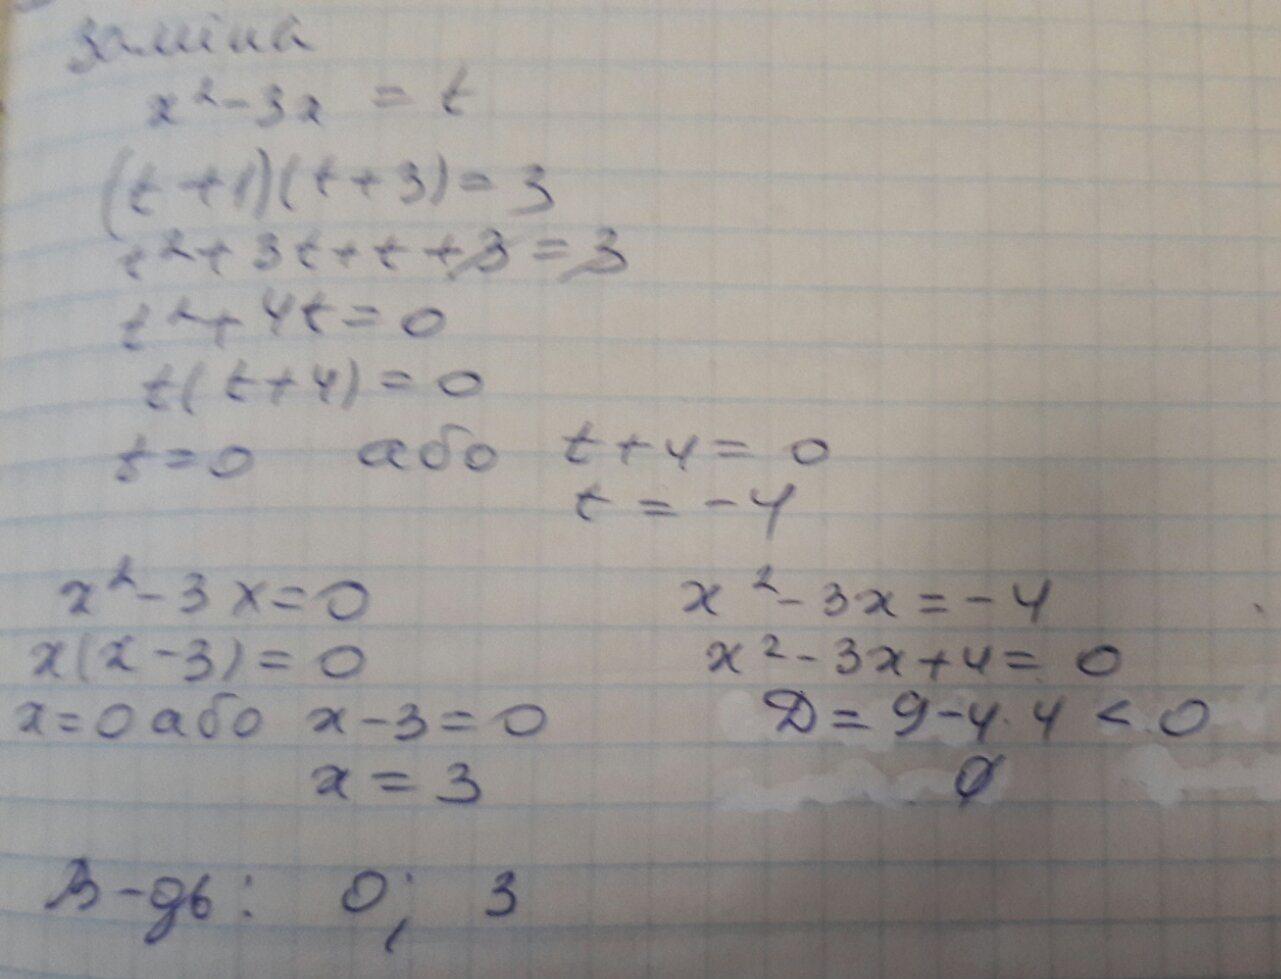 заміна
x² - 3x = t
(t + 1)(t + 3) = 3
t² + 3t + t + 3 = 3
t² + 4t = 0
t(t + 4) = 0
t = 0 або t + 4 = 0
t = -4
x² - 3x = 0
x(x - 3) = 0
x = 0 або x - 3 = 0
x = 3
x² - 3x = -4
x² - 3x + 4 = 0
D = 9 - 4·4 < 0
∅
В-дь: 0; 3